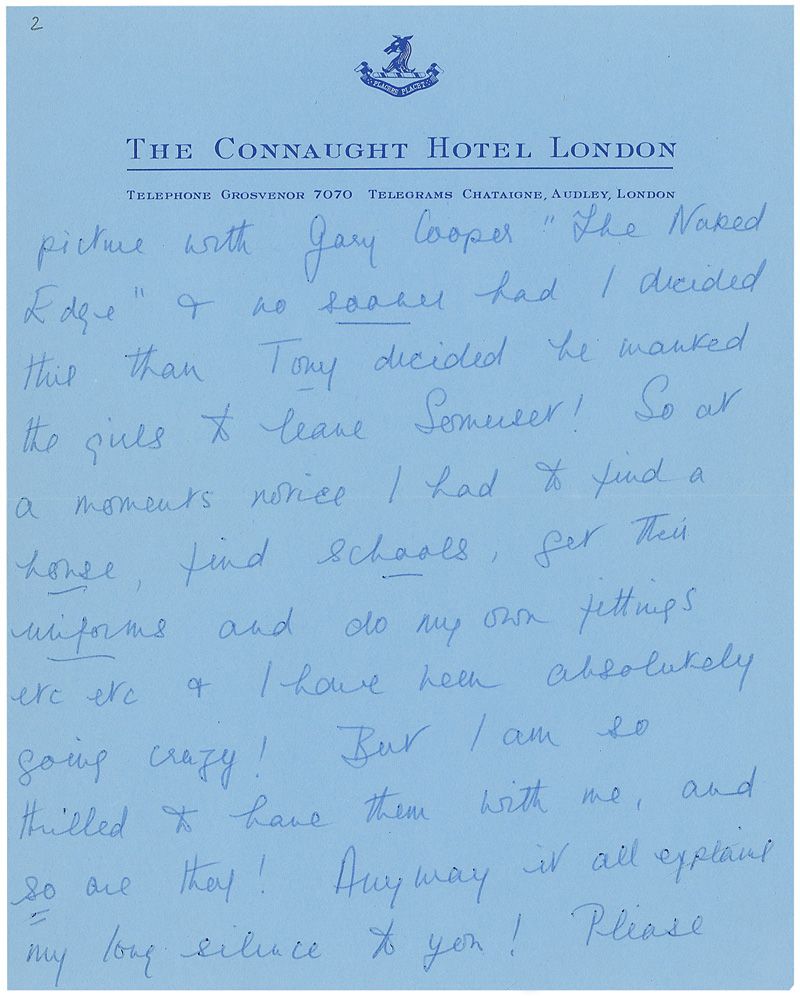 2
PLACERE PLACET
THE CONNAUGHT HOTEL LONDON
TELEPHONE GROSVENOR 7070 TELEGRAMS CHATAIGNE, AUDLEY, LONDON
picture with Gary Cooper "The Naked
Edge" & no sooner had I decided
this than Tony decided he wanted
the girls to leave Somerset! So at
a moments notice I had to find a
house, find schools, get their
uniforms and do my own fittings
etc etc & I have been absolutely
going crazy! But I am so
thrilled to have them with me, and
so are they! Anyway it all explains
my long silence to you! Please